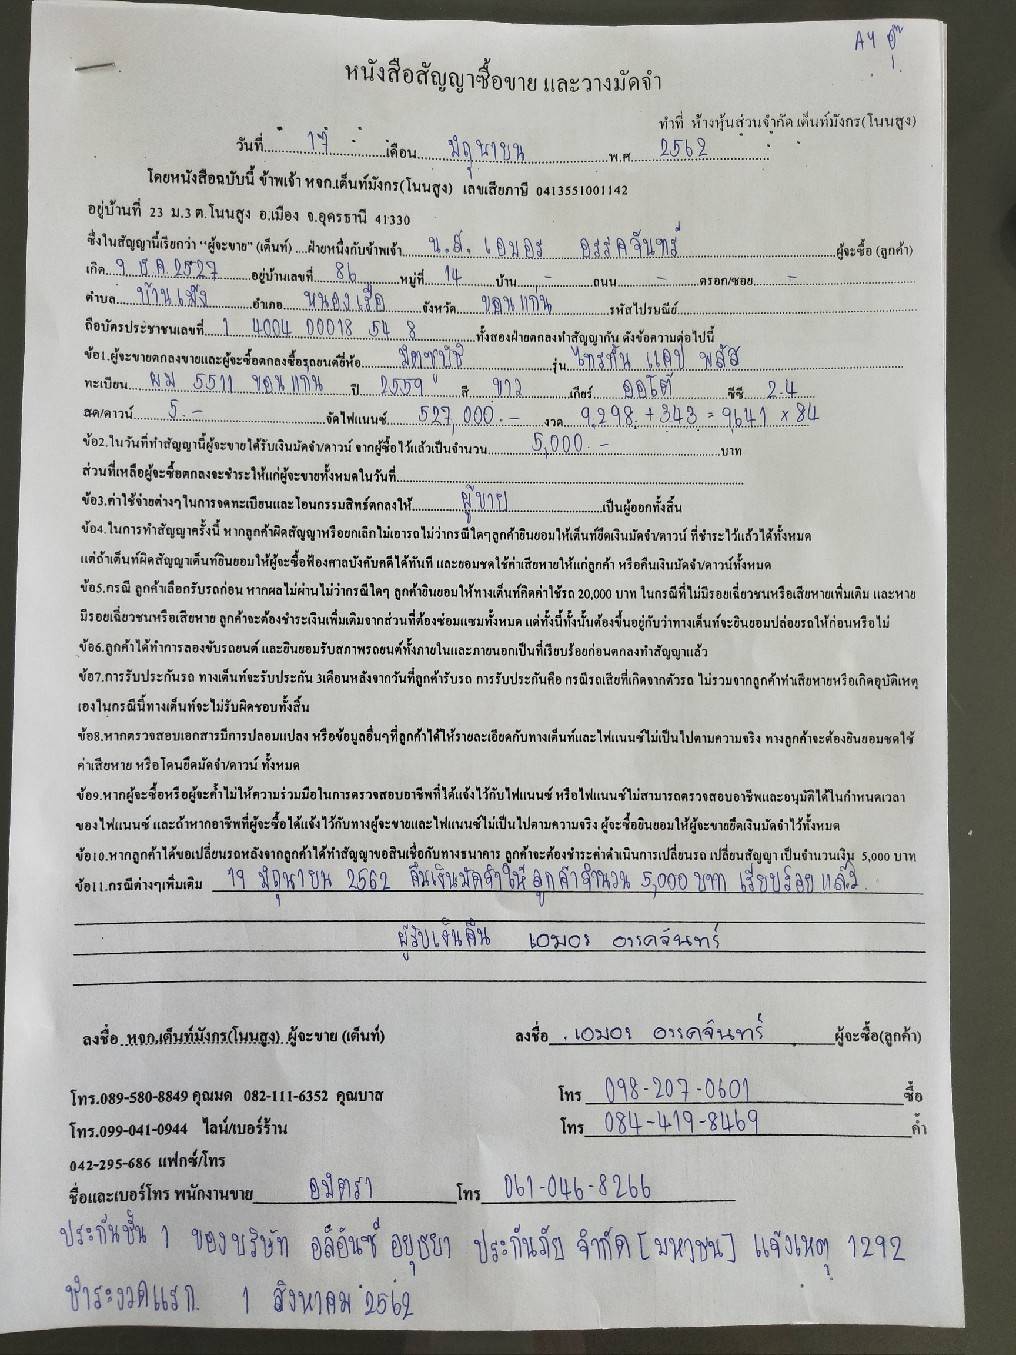 AY
หนังสือสัญญาซื้อขาย และวางมัดจำ
ทำที่ ห้างหุ้นส่วนจำกัด เต็นท์มังกร(โนนสูง)
วันที่ 17 เดือน มิถุนายน พ.ศ. 2562
โดยหนังสือฉบับนี้ ข้าพเจ้า หจก.เต็นท์มังกร(โนนสูง) เลขเสียภาษี 0413551001142
อยู่บ้านที่ 23 ม.3 ต.โนนสูง อ.เมือง จ.อุดรธานี 41330
ซึ่งในสัญญานี้เรียกว่า "ผู้จะขาย" (เต็นท์) ....ฝ่ายหนึ่งกับข้าพเจ้า น.ส. เอมอร อรรคจันทร์ ผู้จะซื้อ (ลูกค้า)
เกิด 9 ธ.ค. 2527 อยู่บ้านเลขที่ 86 หมู่ที่ 14 บ้าน - ถนน - ตรอก/ซอย -
ตำบล บ้านเม็ง อำเภอ หนองเรือ จังหวัด ขอนแก่น รหัสไปรษณีย์
ถือบัตรประชาชนเลขที่ 1 4004 00018 54 8 ทั้งสองฝ่ายตกลงทำสัญญากัน ดังข้อความต่อไปนี้
ข้อ1.ผู้จะขายตกลงขายและผู้จะซื้อตกลงซื้อรถยนต์ยี่ห้อ มิตซูบิชิ รุ่น ไทรทัน แคป พลัส
ทะเบียน ผม 5511 ขอนแก่น ปี 2559 สี ขาว เกียร์ ออโต้ ซีซี 2.4
สด/ดาวน์ 5.- จัดไฟแนนซ์ 527,000.- งวด 9,298 + 343 = 9,641 x 84
ข้อ2.ในวันที่ทำสัญญานี้ผู้จะขายได้รับเงินมัดจำ/ดาวน์ จากผู้ซื้อไว้แล้วเป็นจำนวน 5,000.- บาท
ส่วนที่เหลือผู้จะซื้อตกลงจะชำระให้แก่ผู้จะขายทั้งหมดในวันที่
ข้อ3.ค่าใช้จ่ายต่างๆในการจดทะเบียนและโอนกรรมสิทธิ์ตกลงให้ ผู้ขาย เป็นผู้ออกทั้งสิ้น
ข้อ4.ในการทำสัญญาครั้งนี้ หากลูกค้าผิดสัญญาหรือยกเลิกไม่เอารถไม่ว่ากรณีใดๆลูกค้ายินยอมให้เต็นท์ยึดเงินมัดจำ/ดาวน์ ที่ชำระไว้แล้วได้ทั้งหมด
แต่ถ้าเต็นท์ผิดสัญญาเต็นท์ยินยอมให้ผู้จะซื้อฟ้องศาลบังคับคดีได้ทันที และยอมชดใช้ค่าเสียหายให้แก่ลูกค้า หรือคืนเงินมัดจำ/ดาวน์ทั้งหมด
ข้อ5.กรณี ลูกค้าเลือกรับรถก่อน หากผลไม่ผ่านไม่ว่ากรณีใดๆ ลูกค้ายินยอมให้ทางเต็นท์คิดค่าใช้รถ 20,000 บาท ในกรณีที่ไม่มีรอยเฉี่ยวชนหรือเสียหายเพิ่มเติม และหาย
มีรอยเฉี่ยวชนหรือเสียหาย ลูกค้าจะต้องชำระเงินเพิ่มเติมจากส่วนที่ต้องซ่อมแซมทั้งหมด แต่ทั้งนี้ทั้งนั้นต้องขึ้นอยู่กับว่าทางเต็นท์จะยินยอมปล่อยรถให้ก่อนหรือไม่
ข้อ6.ลูกค้าได้ทำการลองขับรถยนต์ และยินยอมรับสภาพรถยนต์ทั้งภายในและภายนอกเป็นที่เรียบร้อยก่อนตกลงทำสัญญาแล้ว
ข้อ7.การรับประกันรถ ทางเต็นท์จะรับประกัน 3เดือนหลังจากวันที่ลูกค้ารับรถ การรับประกันคือ กรณีรถเสียที่เกิดจากตัวรถ ไม่รวมจากลูกค้าทำเสียหายหรือเกิดอุบัติเหตุ
เองในกรณีนี้ทางเต็นท์จะไม่รับผิดชอบทั้งสิ้น
ข้อ8.หากตรวจสอบเอกสารมีการปลอมแปลง หรือข้อมูลอื่นๆที่ลูกค้าได้ให้รายละเอียดกับทางเต็นท์และไฟแนนซ์ไม่เป็นไปตามความจริง ทางลูกค้าจะต้องยินยอมชดใช้
ค่าเสียหาย หรือโดนยึดมัดจำ/ดาวน์ ทั้งหมด
ข้อ9.หากผู้จะซื้อหรือผู้จะค้ำไม่ให้ความร่วมมือในการตรวจสอบอาชีพที่ได้แจ้งไว้กับไฟแนนซ์ หรือไฟแนนซ์ไม่สามารถตรวจสอบอาชีพและอนุมัติได้ในกำหนดเวลา
ของไฟแนนซ์ และถ้าหากอาชีพที่ผู้จะซื้อได้แจ้งไว้กับทางผู้จะขายและไฟแนนซ์ไม่เป็นไปตามความจริง ผู้จะซื้อยินยอมให้ผู้จะขายยึดเงินมัดจำไว้ทั้งหมด
ข้อ10.หากลูกค้าได้ขอเปลี่ยนรถหลังจากลูกค้าได้ทำสัญญาขอสินเชื่อกับทางธนาคาร ลูกค้าจะต้องชำระค่าดำเนินการเปลี่ยนรถ เปลี่ยนสัญญา เป็นจำนวนเงิน 5,000 บาท
ข้อ11.กรณีต่างๆเพิ่มเติม 19 มิถุนายน 2562 คืนเงินมัดจำให้ ลูกค้าจำนวน 5,000 บาท เรียบร้อย แล้ว
ผู้รับเงินคืน เอมอร อรรคจันทร์
ลงชื่อ หจก.เต็นท์มังกร(โนนสูง) ผู้จะขาย (เต็นท์) ลงชื่อ เอมอร อรรคจันทร์ ผู้จะซื้อ(ลูกค้า)
โทร.089-580-8849 คุณมด 082-111-6352 คุณบาส โทร 098-207-0601 ซื้อ
โทร.099-041-0944 ไลน์/เบอร์ร้าน โทร 084-419-8469 ค้ำ
042-295-686 แฟกซ์/โทร
ชื่อและเบอร์โทร พนักงานขาย อมิตรา โทร 061-046-8266
ประกันชั้น 1 ของบริษัท อลิอันซ์ อยุธยา ประกันภัย จำกัด [มหาชน] แจ้งเหตุ 1292
ชำระงวดแรก 1 สิงหาคม 2562